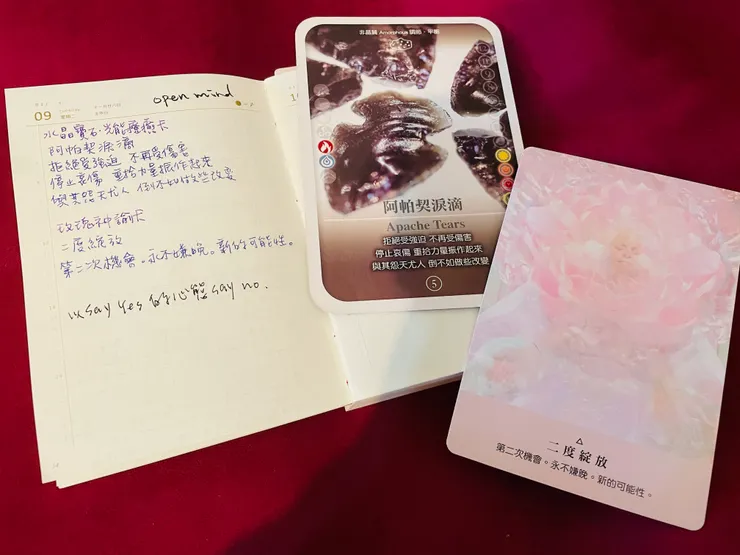 open mind
09
水晶寶石・光能療癒卡
阿帕契淚滴
拒絕受強迫 不再受傷害
停止哀傷 重拾力量振作起來
與其怨天尤人 倒不如做些改變
玫瑰神諭卡
二度綻放
第二次機會。永不嫌晚。新的可能性。
以 say yes 的心態 say no.
非晶質 Amorphous
阿帕契淚滴
Apache Tears
拒絕受強迫 不再受傷害
停止哀傷 重拾力量振作起來
與其怨天尤人 倒不如做些改變
5
二度綻放
第二次機會。永不嫌晚。新的可能性。